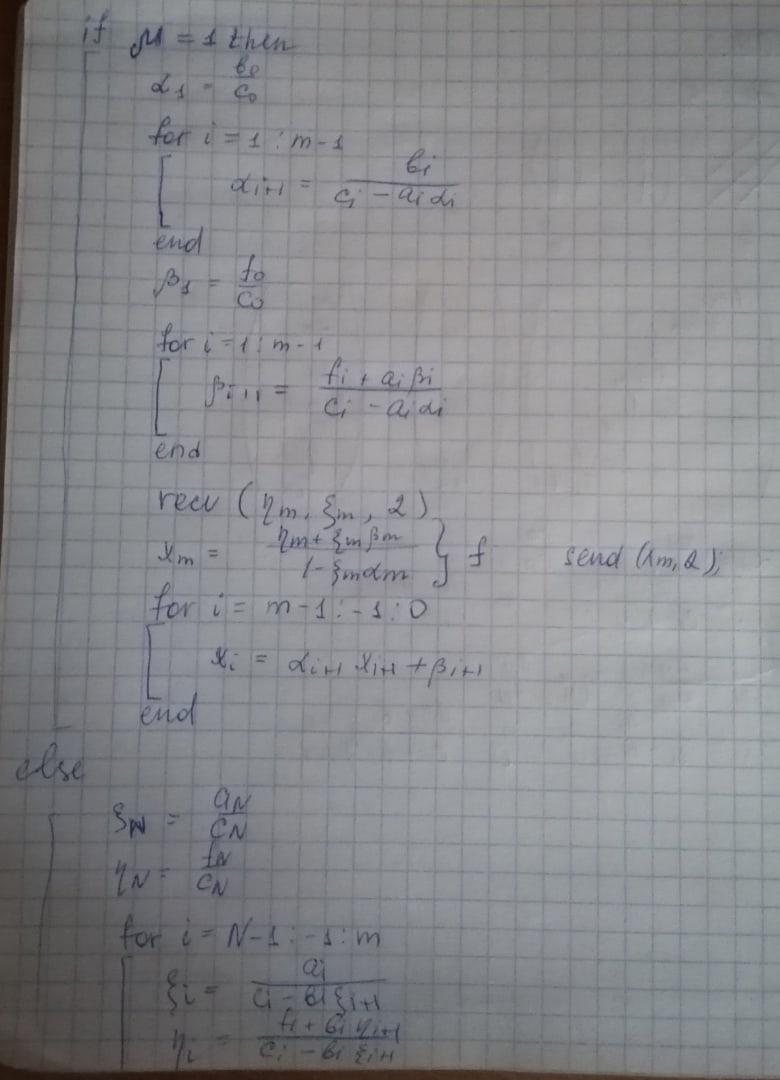 if μ = 1 then
α₁ = b₀/c₀
for i = 1 : m-1
αᵢ₊₁ = bᵢ/(cᵢ - aᵢαᵢ)
end
β₁ = f₀/c₀
for i = 1 : m-1
βᵢ₊₁ = (fᵢ + aᵢβᵢ)/(cᵢ - aᵢαᵢ)
end
recv (ηₘ, ξₘ, 2)
xₘ = (ηₘ + ξₘβₘ)/(1 - ξₘαₘ) } f send (xₘ, 2);
for i = m-1 : -1 : 0
xᵢ = αᵢ₊₁ xᵢ₊₁ + βᵢ₊₁
end
else
ξ_N = a_N/c_N
η_N = f_N/c_N
for i = N-1 : -1 : m
ξᵢ = aᵢ/(cᵢ - bᵢξᵢ₊₁)
ηᵢ = (fᵢ + bᵢηᵢ₊₁)/(cᵢ - bᵢξᵢ₊₁)